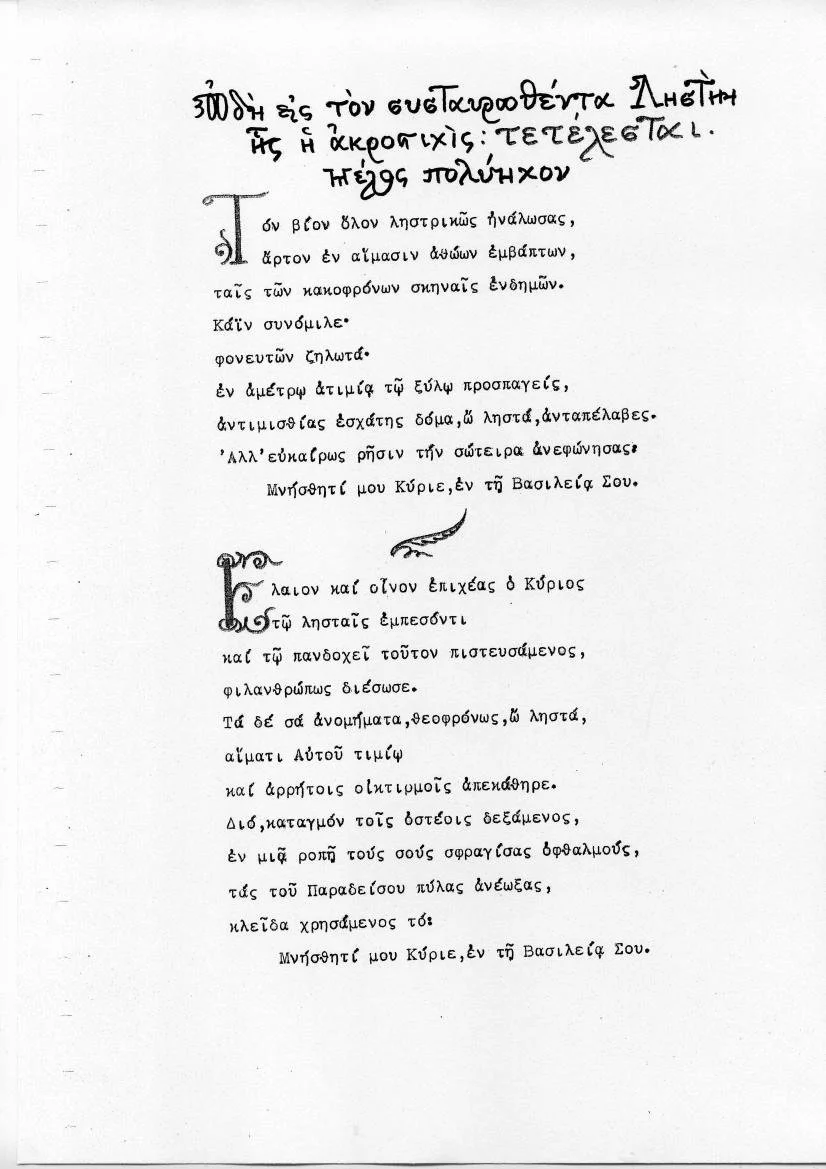 ᾨδὴ εἰς τὸν συσταυρωθέντα Λῃστὴν
ἧς ἡ ἀκροστιχίς: τετέλεσται.
Μέλος πολύηχον
Τόν βίον ὅλον ληστρικῶς ἠνάλωσας,
ἄρτον ἐν αἵμασιν ἀθώων ἐμβάπτων,
ταῖς τῶν κακοφρόνων σκηναῖς ἐνδημῶν.
Κάϊν συνόμιλε·
φονευτῶν ζηλωτά·
ἐν ἀμέτρῳ ἀτιμίᾳ τῷ ξύλῳ προσπαγείς,
ἀντιμισθίας ἐσχάτης δόμα, ὦ ληστά, ἀνταπέλαβες.
Ἀλλ' εὐκαίρως ρῆσιν τήν σώτειρα ἀνεφώνησας:
Μνήσθητί μου Κύριε, ἐν τῇ Βασιλείᾳ Σου.
Ἔλαιον καί οἶνον ἐπιχέας ὁ Κύριος
τῷ λησταῖς ἐμπεσόντι
καί τῷ πανδοχεῖ τοῦτον πιστευσάμενος,
φιλανθρώπως διέσωσε.
Τά δέ σά ἀνομήματα, θεοφρόνως, ὦ ληστά,
αἵματι Αὐτοῦ τιμίῳ
καί ἀρρήτοις οἰκτιρμοῖς ἀπεκάθηρε.
Διό, καταγμόν τοῖς ὀστέοις δεξάμενος,
ἐν μιᾷ ροπῇ τούς σούς σφραγίσας ὀφθαλμούς,
τάς τοῦ Παραδείσου πύλας ἀνέωξας,
κλεῖδα χρησάμενος τό:
Μνήσθητί μου Κύριε, ἐν τῇ Βασιλείᾳ Σου.